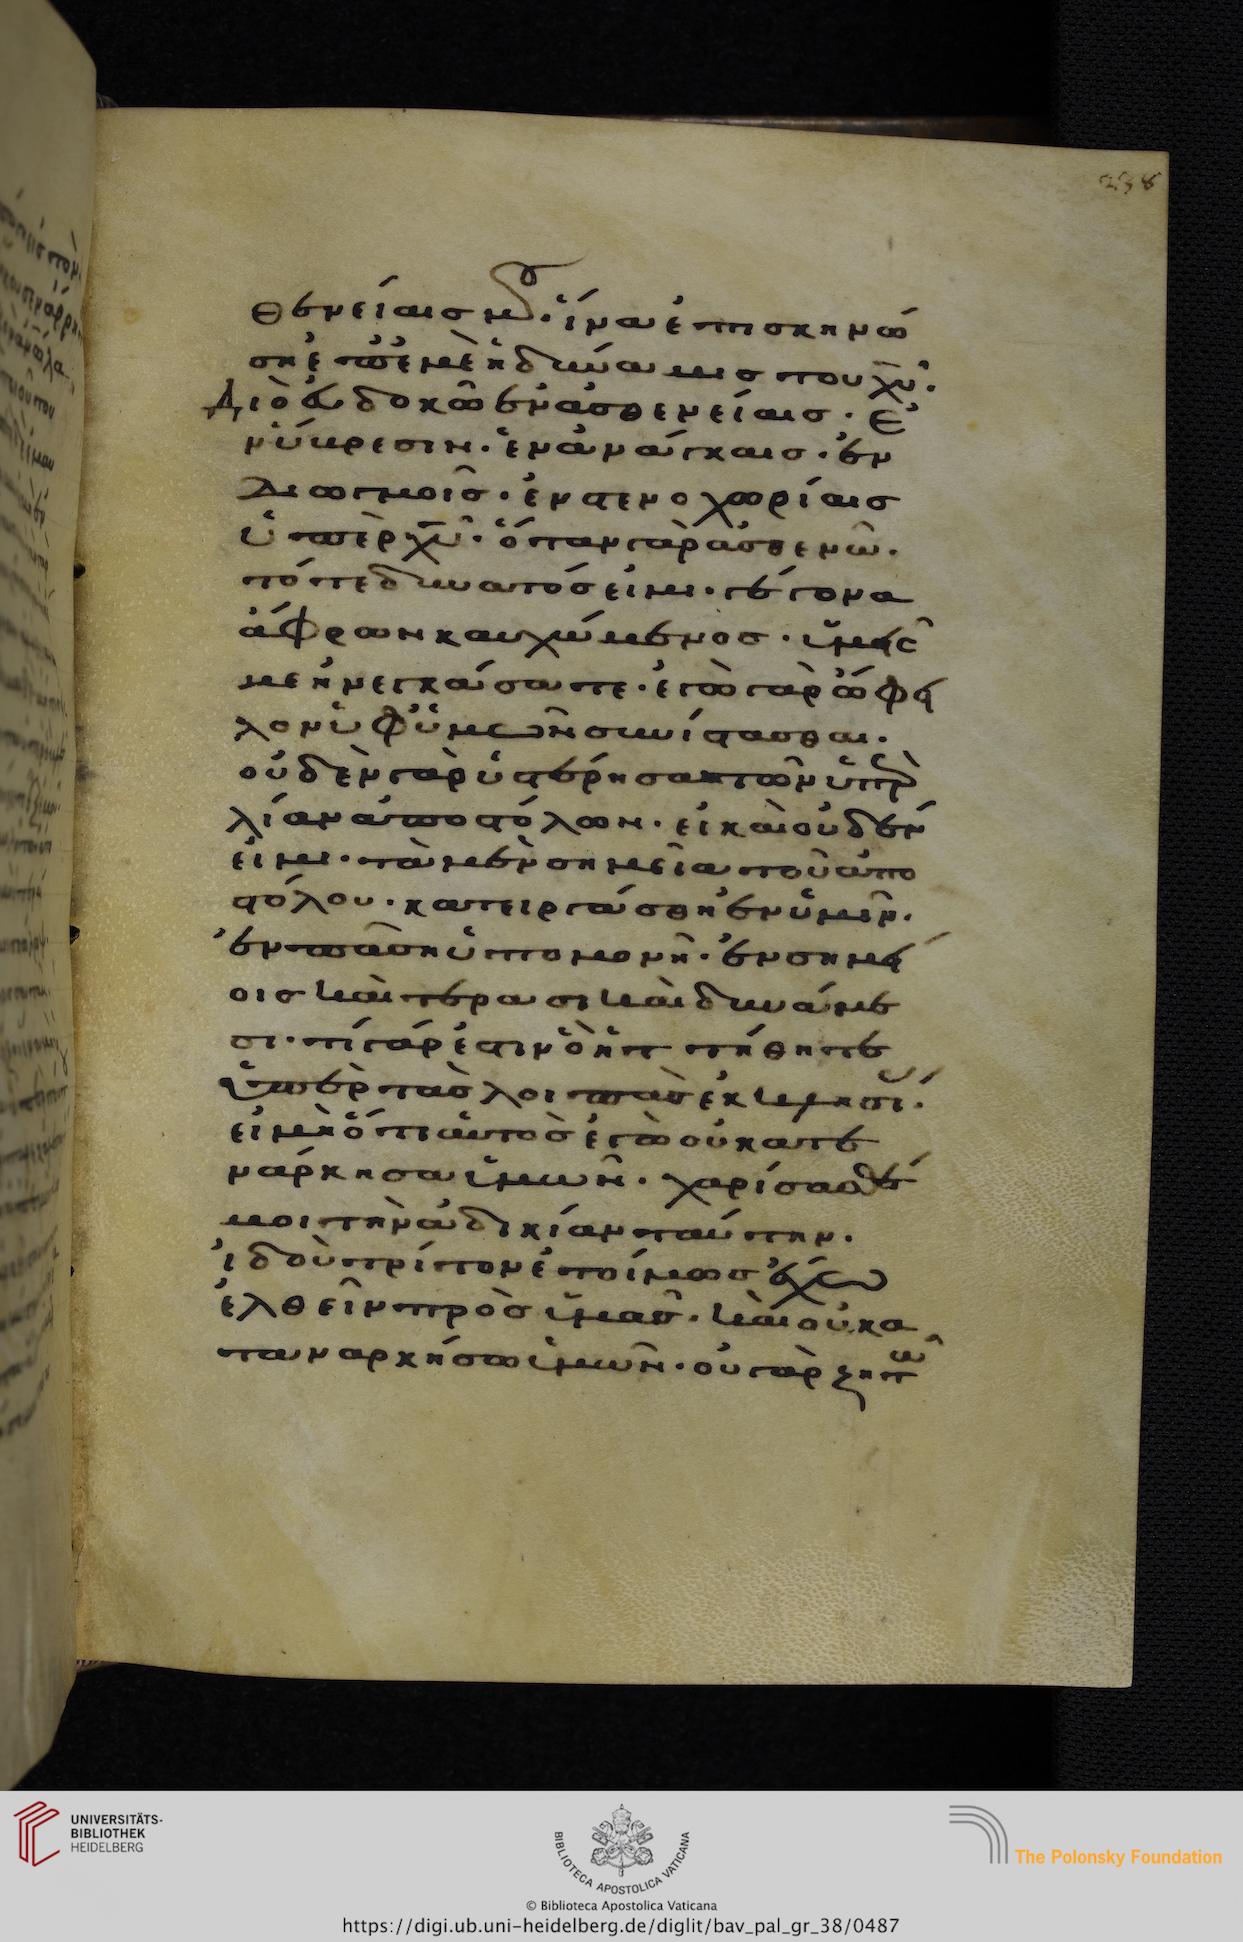 238
θενείαις μου· ἵνα ἐπισκηνώ
ση ἐπ' ἐμὲ ἡ δύναμις του χυ·
Διὸ εὐδοκῶ ἐν ἀσθενείαις· ἐ
ν ὕβρεσιν· ἐν ἀνάγκαις· ἐν
διωγμοῖς· ἐν στενοχωρίαις
ὑπὲρ χυ· ὅταν γὰρ ἀσθενῶ·
τότε δυνατός εἰμι· γέγονα
ἄφρων καυχώμενος· ὑμεῖς
με ἠνεγκάσατε· ἐγὼ γὰρ ὤφει
λον ὑφ' ὑμῶν συνίστασθαι·
οὐδὲν γὰρ ὑστέρησα τῶν ὑπὲρ
λίαν ἀποστόλων· εἰ καὶ οὐδέν
εἰμι· τὰ μὲν σημεῖα τοῦ ἀπο
στόλου· κατειργάσθη ἐν ὑμῖν·
ἐν πάση ὑπομονῆ· ἐν σημεί
οις καὶ τέρασι καὶ δυνάμε
σι· τί γάρ ἐστιν ὃ ἡττήθητε
ὑπὲρ τὰς λοιπὰς ἐκκλησί·
εἰ μὴ ὅτι αὐτὸς ἐγὼ οὐ κατε
νάρκησα ὑμῶν· χαρίσασθέ
μοι τὴν ἀδικίαν ταύτην·
ἰδοὺ τρίτον ἑτοίμως ἔχω
ἐλθεῖν πρὸς ὑμᾶς· καὶ οὐ κα
ταναρκήσω ὑμῶν· οὐ γὰρ ζητῶ
UNIVERSITÄTS-
BIBLIOTHEK
HEIDELBERG
BIBLIOTECA APOSTOLICA VATICANA
The Polonsky Foundation
© Biblioteca Apostolica Vaticana
https://digi.ub.uni-heidelberg.de/diglit/bav_pal_gr_38/0487